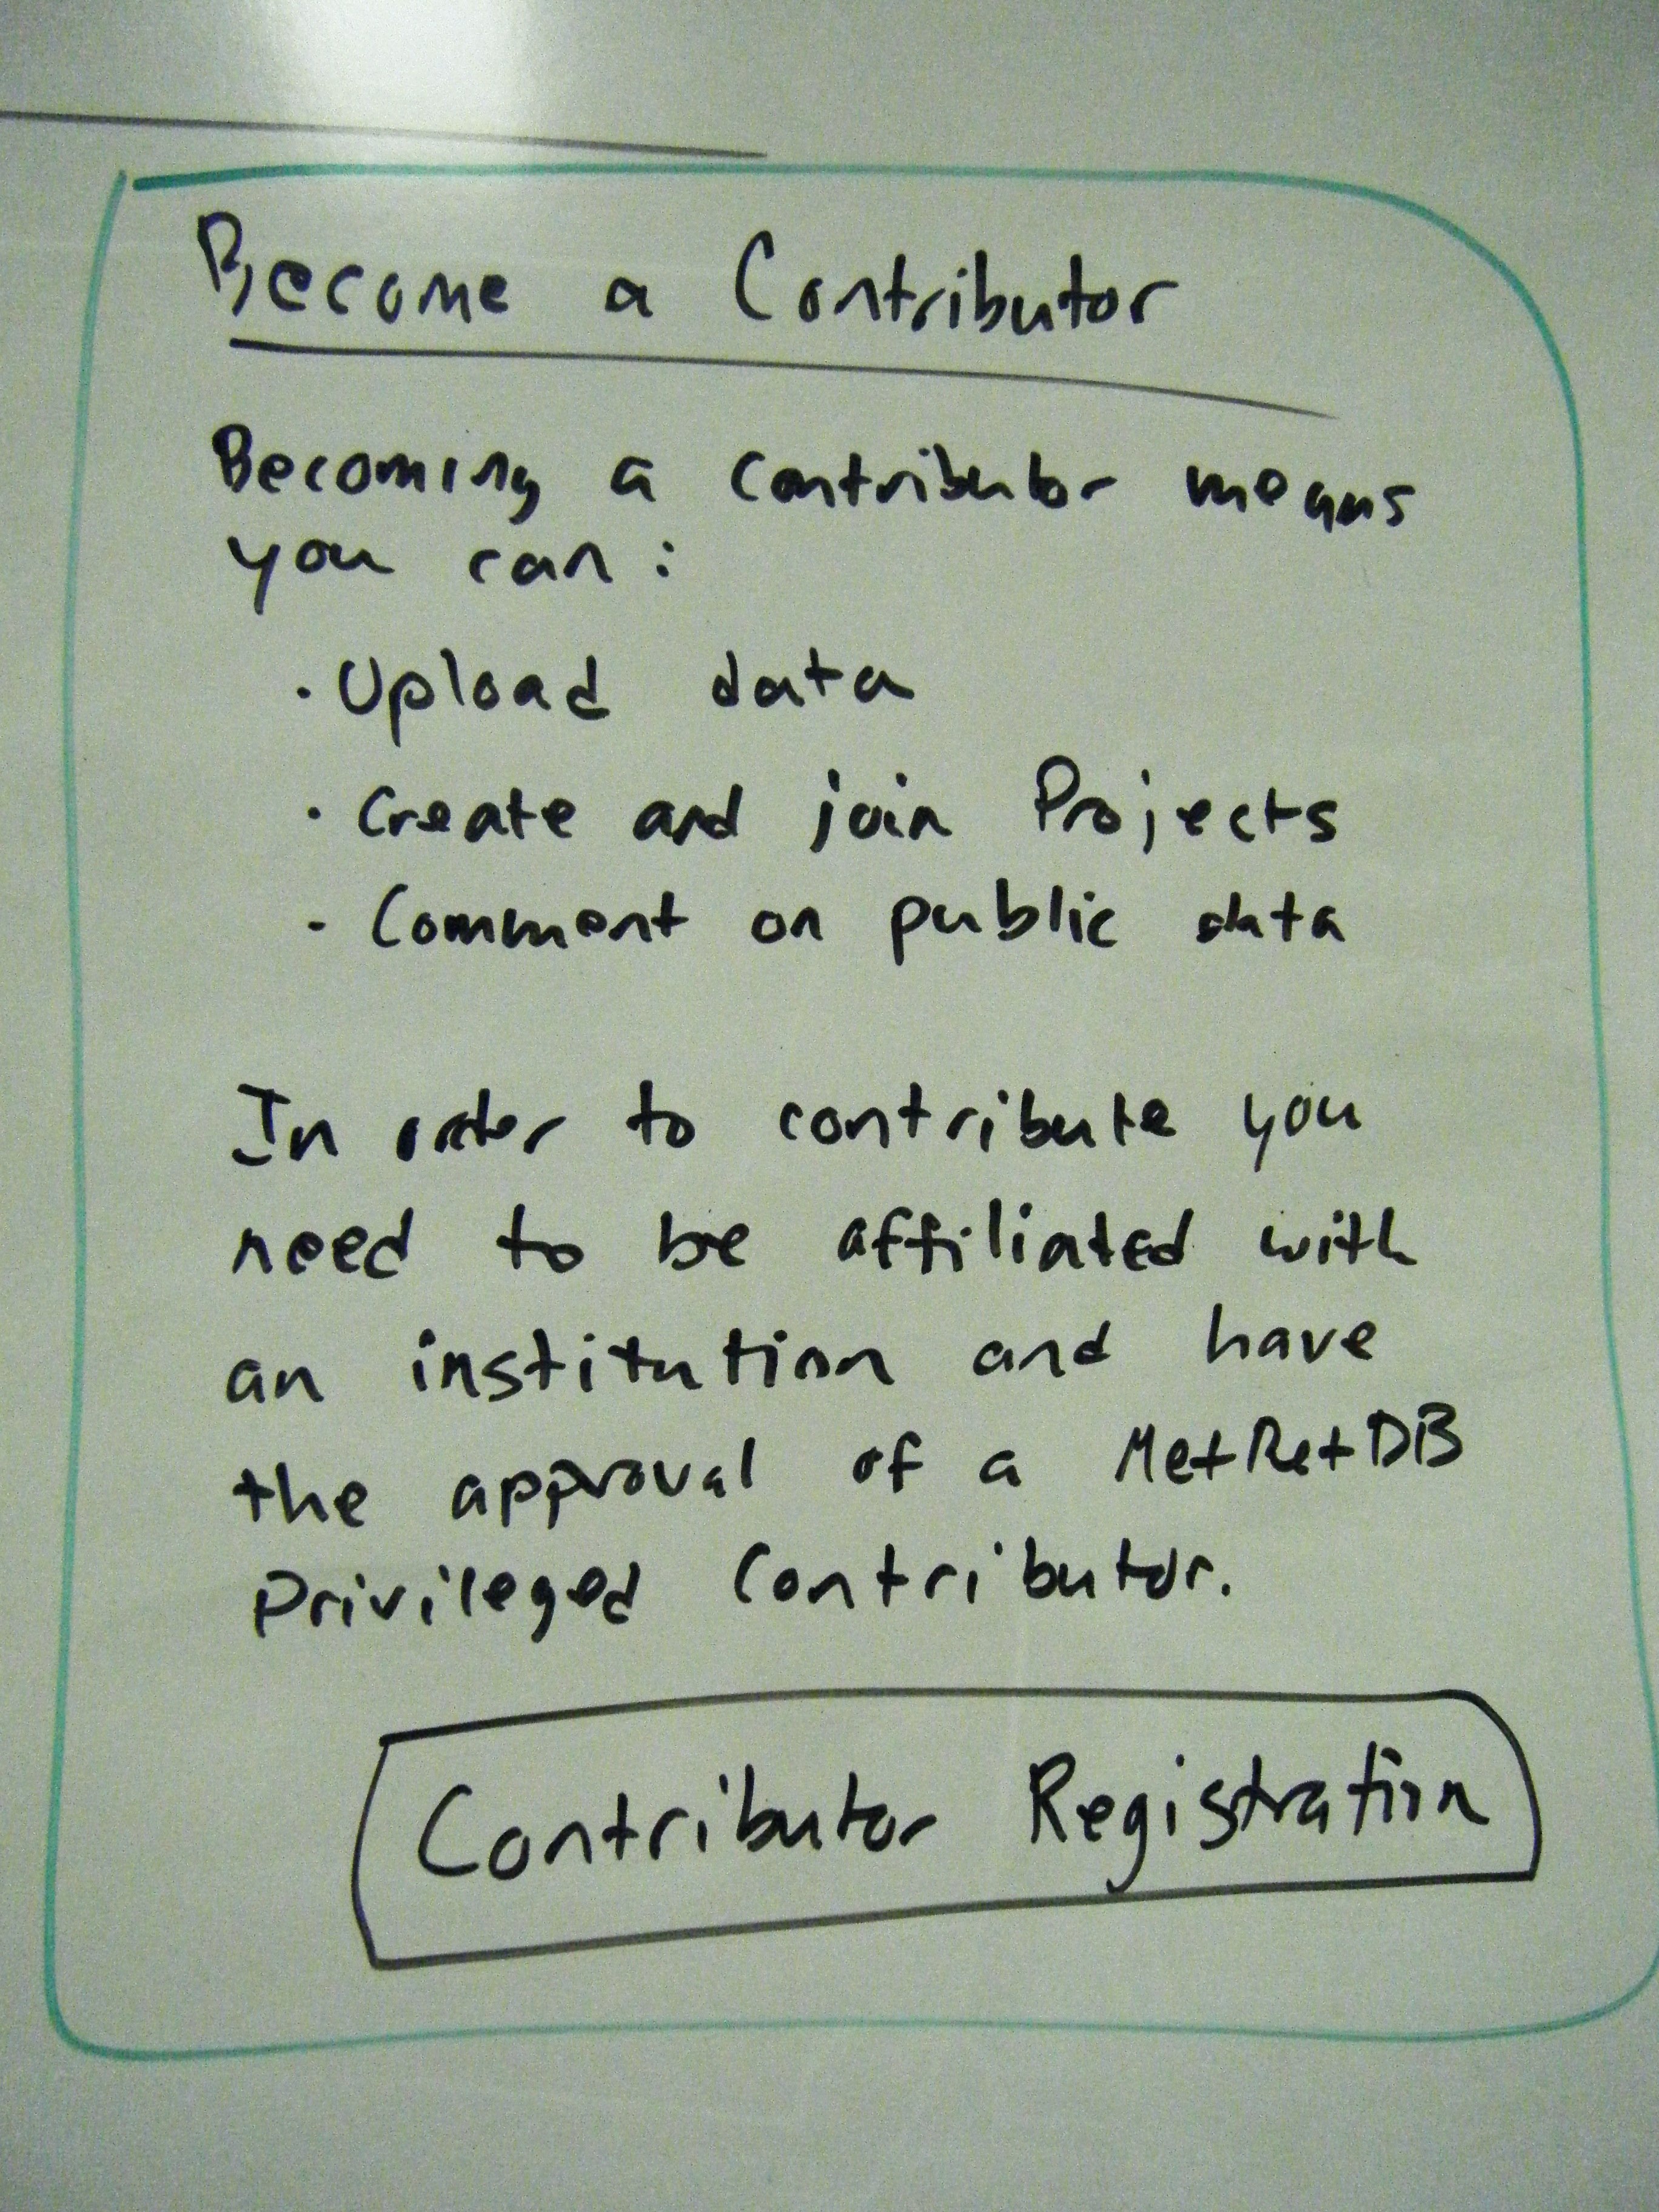 Become a Contributor
Becoming a contributor means
you can:
· Upload data
· Create and join Projects
- Comment on public data
In order to contribute you
need to be affiliated with
an institution and have
the approval of a MetRetDB
Privileged Contributor.
Contributor Registration